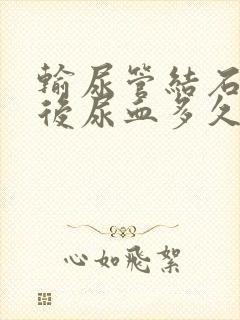 輸尿管結石
後尿血多久
心如飛絮